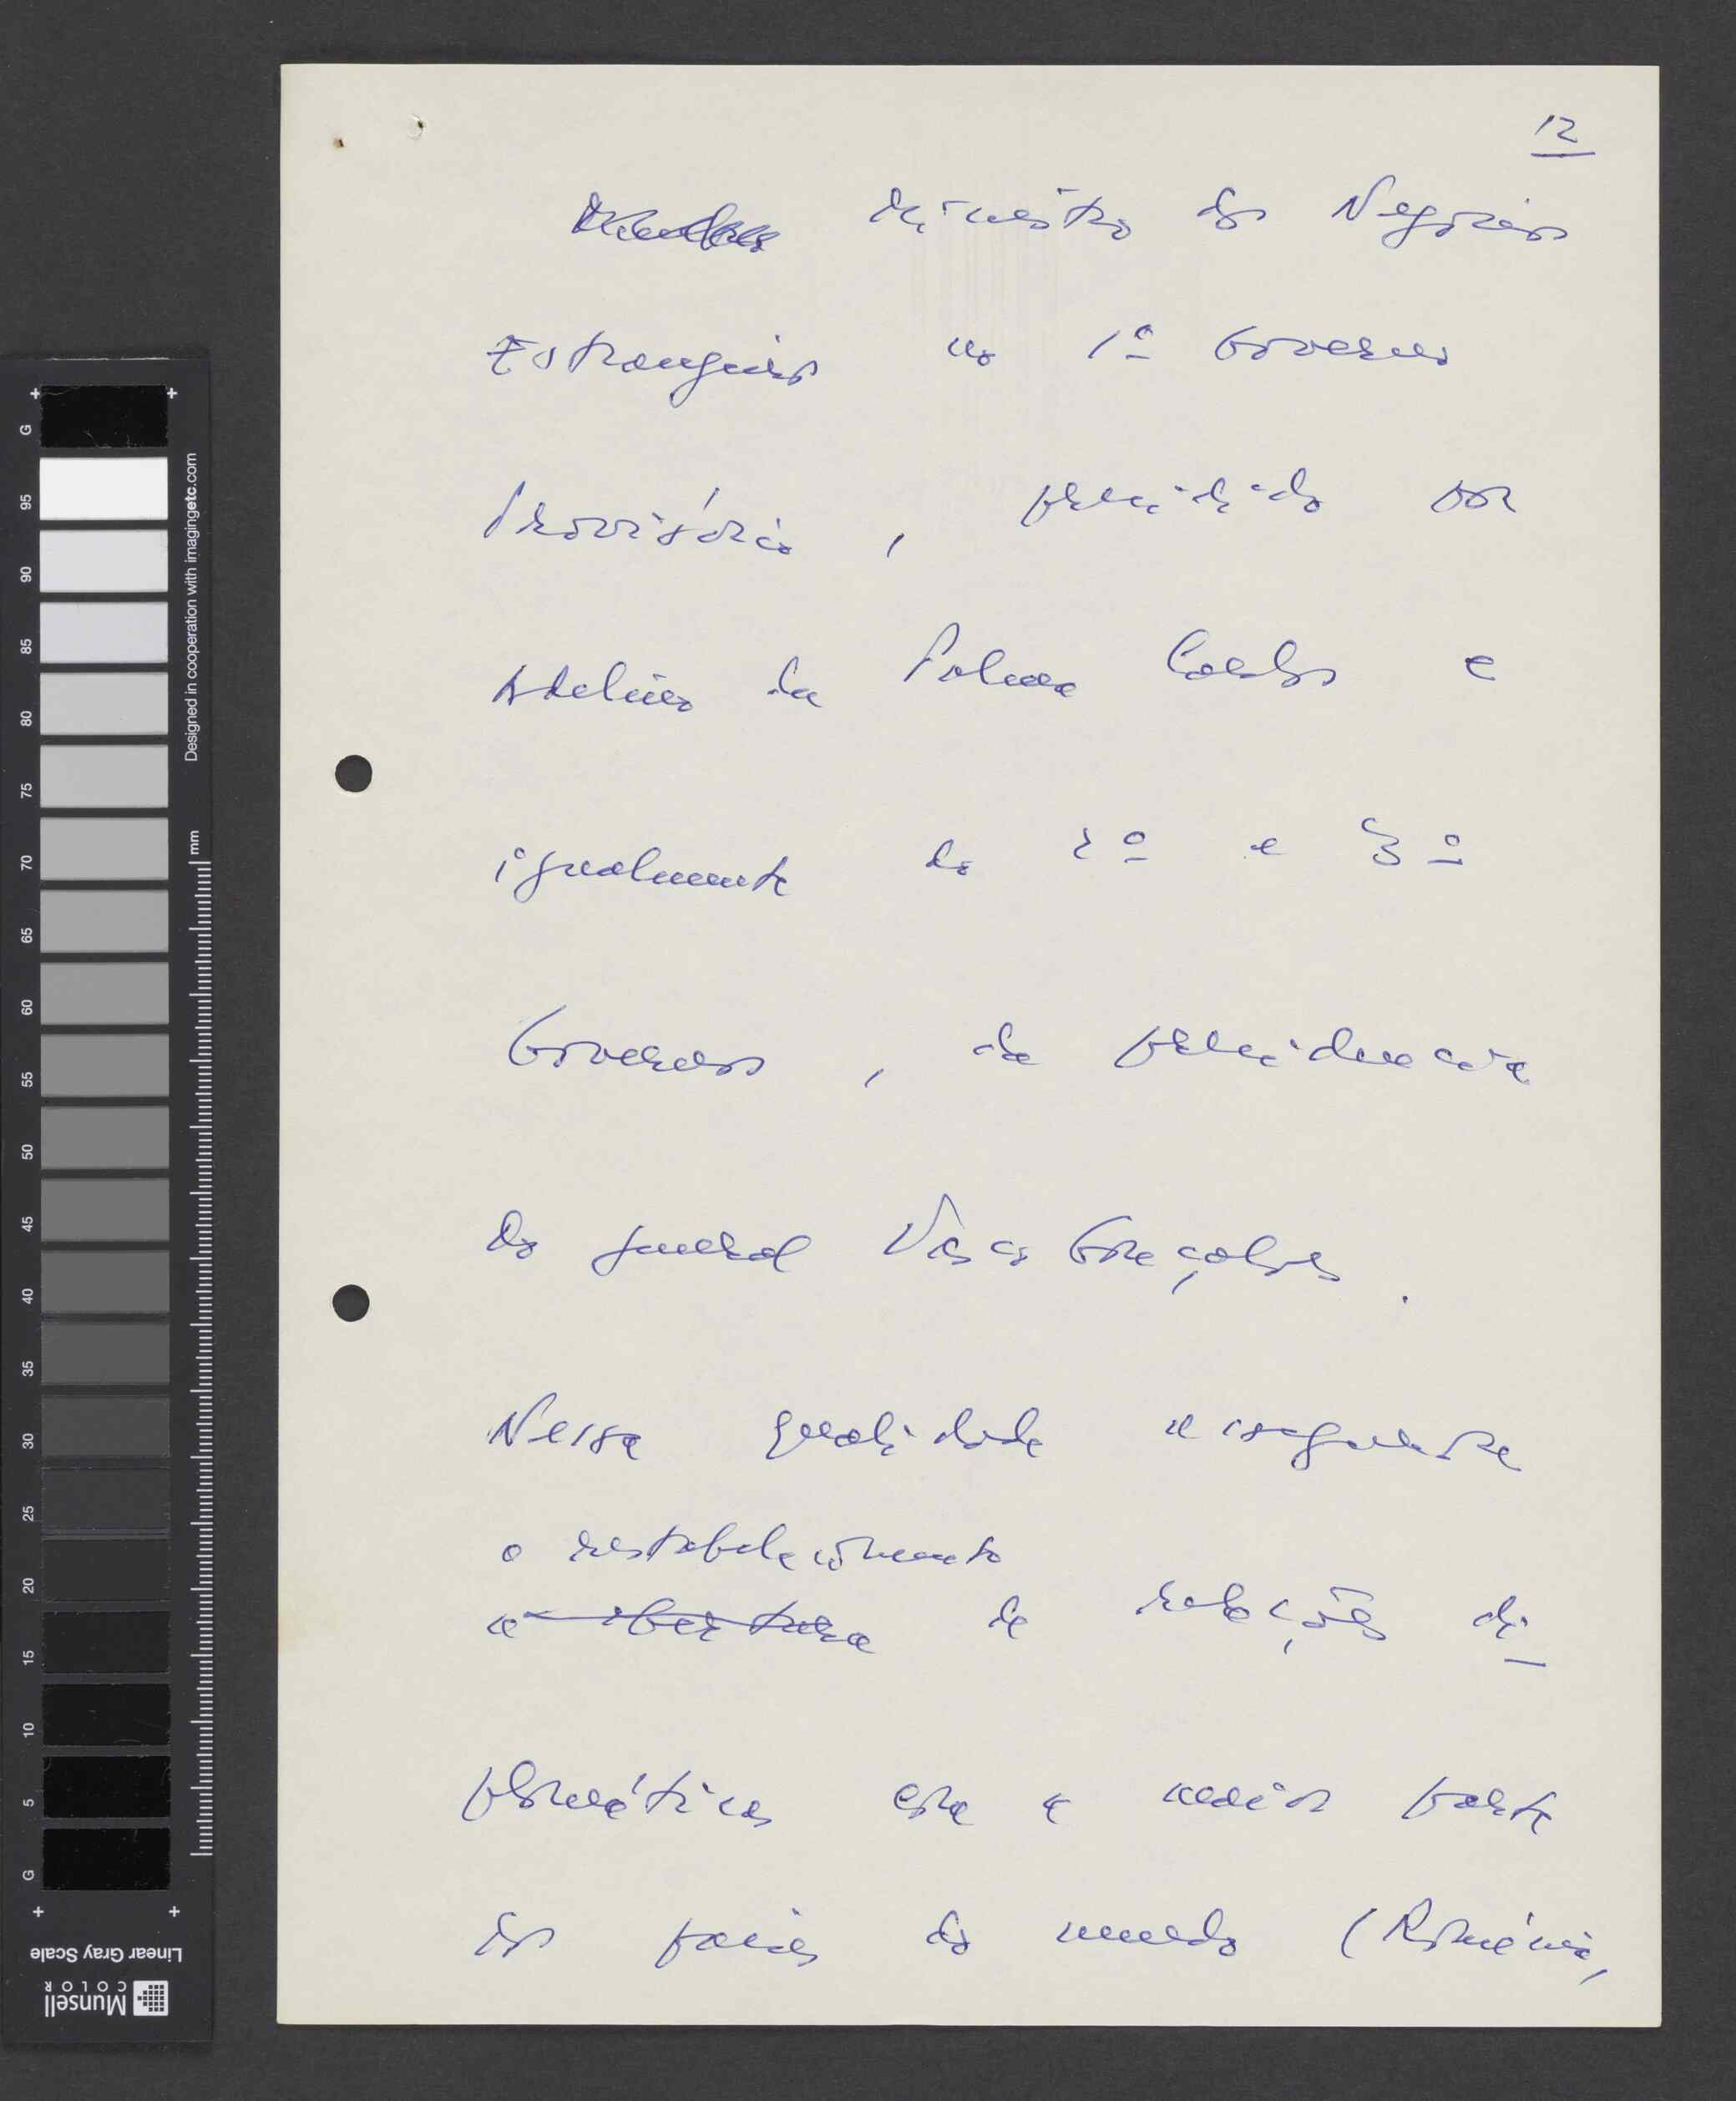 12
Ministro dos Negócios
Estrangeiros no 1º Governo
Provisório, presidido por
Adelino da Palma Carlos e
igualmente do 2º e 3º
Governos, da presidencia
do general Vasco Gonçalves.
Nessa qualidade assegura
o restabelecimento
a abertura de relações di-
plomáticas com a maior parte
dos países do mundo (Roménia,
G
95
90
85
80
75
70
65
60
55
50
45
40
35
30
25
20
15
10
5
G
mm
Designed in cooperation with imagingetc.com
Linear Gray Scale
Munsell
COLOR